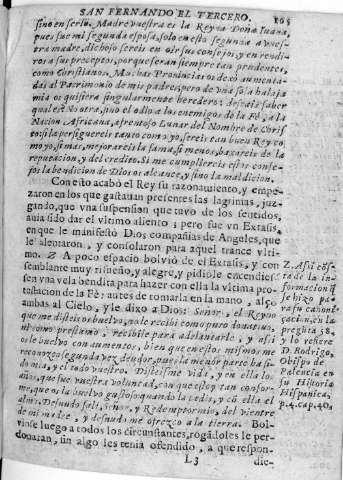 SAN FERNANDO EL TERCERO. 105
sino en serlo. Madre vuestra es la Reyna Doña Iuana,
pues fue mi segunda esposa, solo en esto segunda a vues-
tra madre, dichoso sereis en oir sus consejos, y en rendi-
ros a sus preceptos, porque seran siempre tan prudentes,
como Christianos. Muchas Prouincias os dexo aumenta-
das al Patrimonio de mis padres, pero de vna sola alhaja
mia os quisiera singularmente heredero: dexais saber
qual es? Nuestra, sino el odio a los enemigos de la Fè, a la
Nacion Africana, afrentoso Lunar del Nombre de Chris
to: si la persiguereis tanto como yo, sereis tan buen Rey co
mo yo, si mas, mejorareis la fama, si menos, baxareis de la
reputacion, y del credito. Si me cumpliereis estos conse-
jos la bendicion de Dios os alcance, y sino la maldicion.
Con esto acabò el Rey su razonamiento, y empe-
zaron en los que gastauan presentes las lagrimas, juz-
gando, que vna suspension que tuvo de los sentidos,
auia sido dar el vltimo aliento; pero fue vn Extasis,
en que le manifestò Dios compañias de Angeles, que
le alentaron, y consolaron para aquel trance vlti-
mo. Z A poco espacio bolviò de el Extasis, y con
semblante muy risueño, y alegre, y pidiole encendies-
sen vna vela bendita para hazer con ella la vltima pro-
testacion de la Fè; antes de tomarla en la mano, alçò
ambas al Cielo, y le dixo a Dios: Señor, el Reyno
que me disteis os buelvo, no le recibi como puro donatiuo,
ni como prestamo, recibile para adelantarle, y assi
os le buelvo con aumentos, bien que en estos mismos me
reconozco segunda vez deudor, pues la mejor parte ha si-
do mia, y el todo vuestro. Disteisme vida, y en ella lo
años, que fue vuestra voluntad, con que estoy tan confor-
me, que os la buelvo gustoso quando la cedo, y cō ella el
alma. Desnudo salí, Señor, y Redemptor mio, del vientre
de mi madre, y desnudo me ofrezco a la tierra. Bol-
viose luego a todos los circunstantes, rogādoles le per-
donaran, sin algo les tenia ofendido, a que respon-
L3 die-
Z. Assi cōs-
ta de la in-
formacion q̄
se hizo pa-
ra su canoni-
zacion, en la
pregunta 58.
y lo refiere
D. Rodrigo,
Obispo de
Palencia en
su Historia
Hispanica,
p. 4. cap. 40.